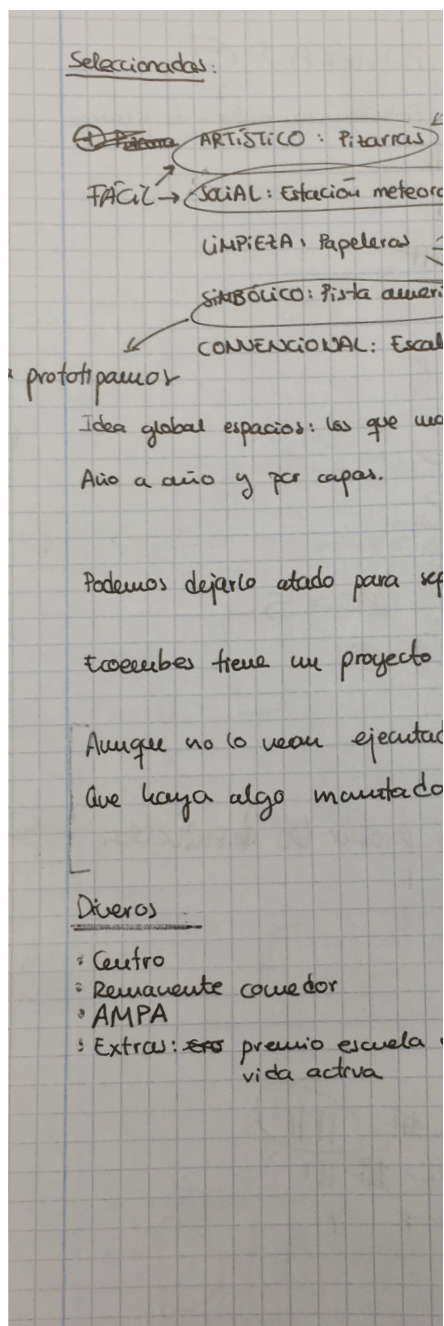 Seleccionadas:
ARTÍSTICO: Pizarras
FÁCIL → SOCIAL: Estación meteoro
LIMPIEZA: Papeleras
SIMBÓLICO: Pista ameri
CONVENCIONAL: Escal
prototipamos
Idea global espacios: los que
Año a año y por capas.
Podemos dejarlo atado para sep
Ecoembes tiene un proyecto
Aunque no lo vean ejecutad
Que haya algo montado
Dineros
Centro
Remanente comedor
AMPA
Extras: premio escuela
vida activa